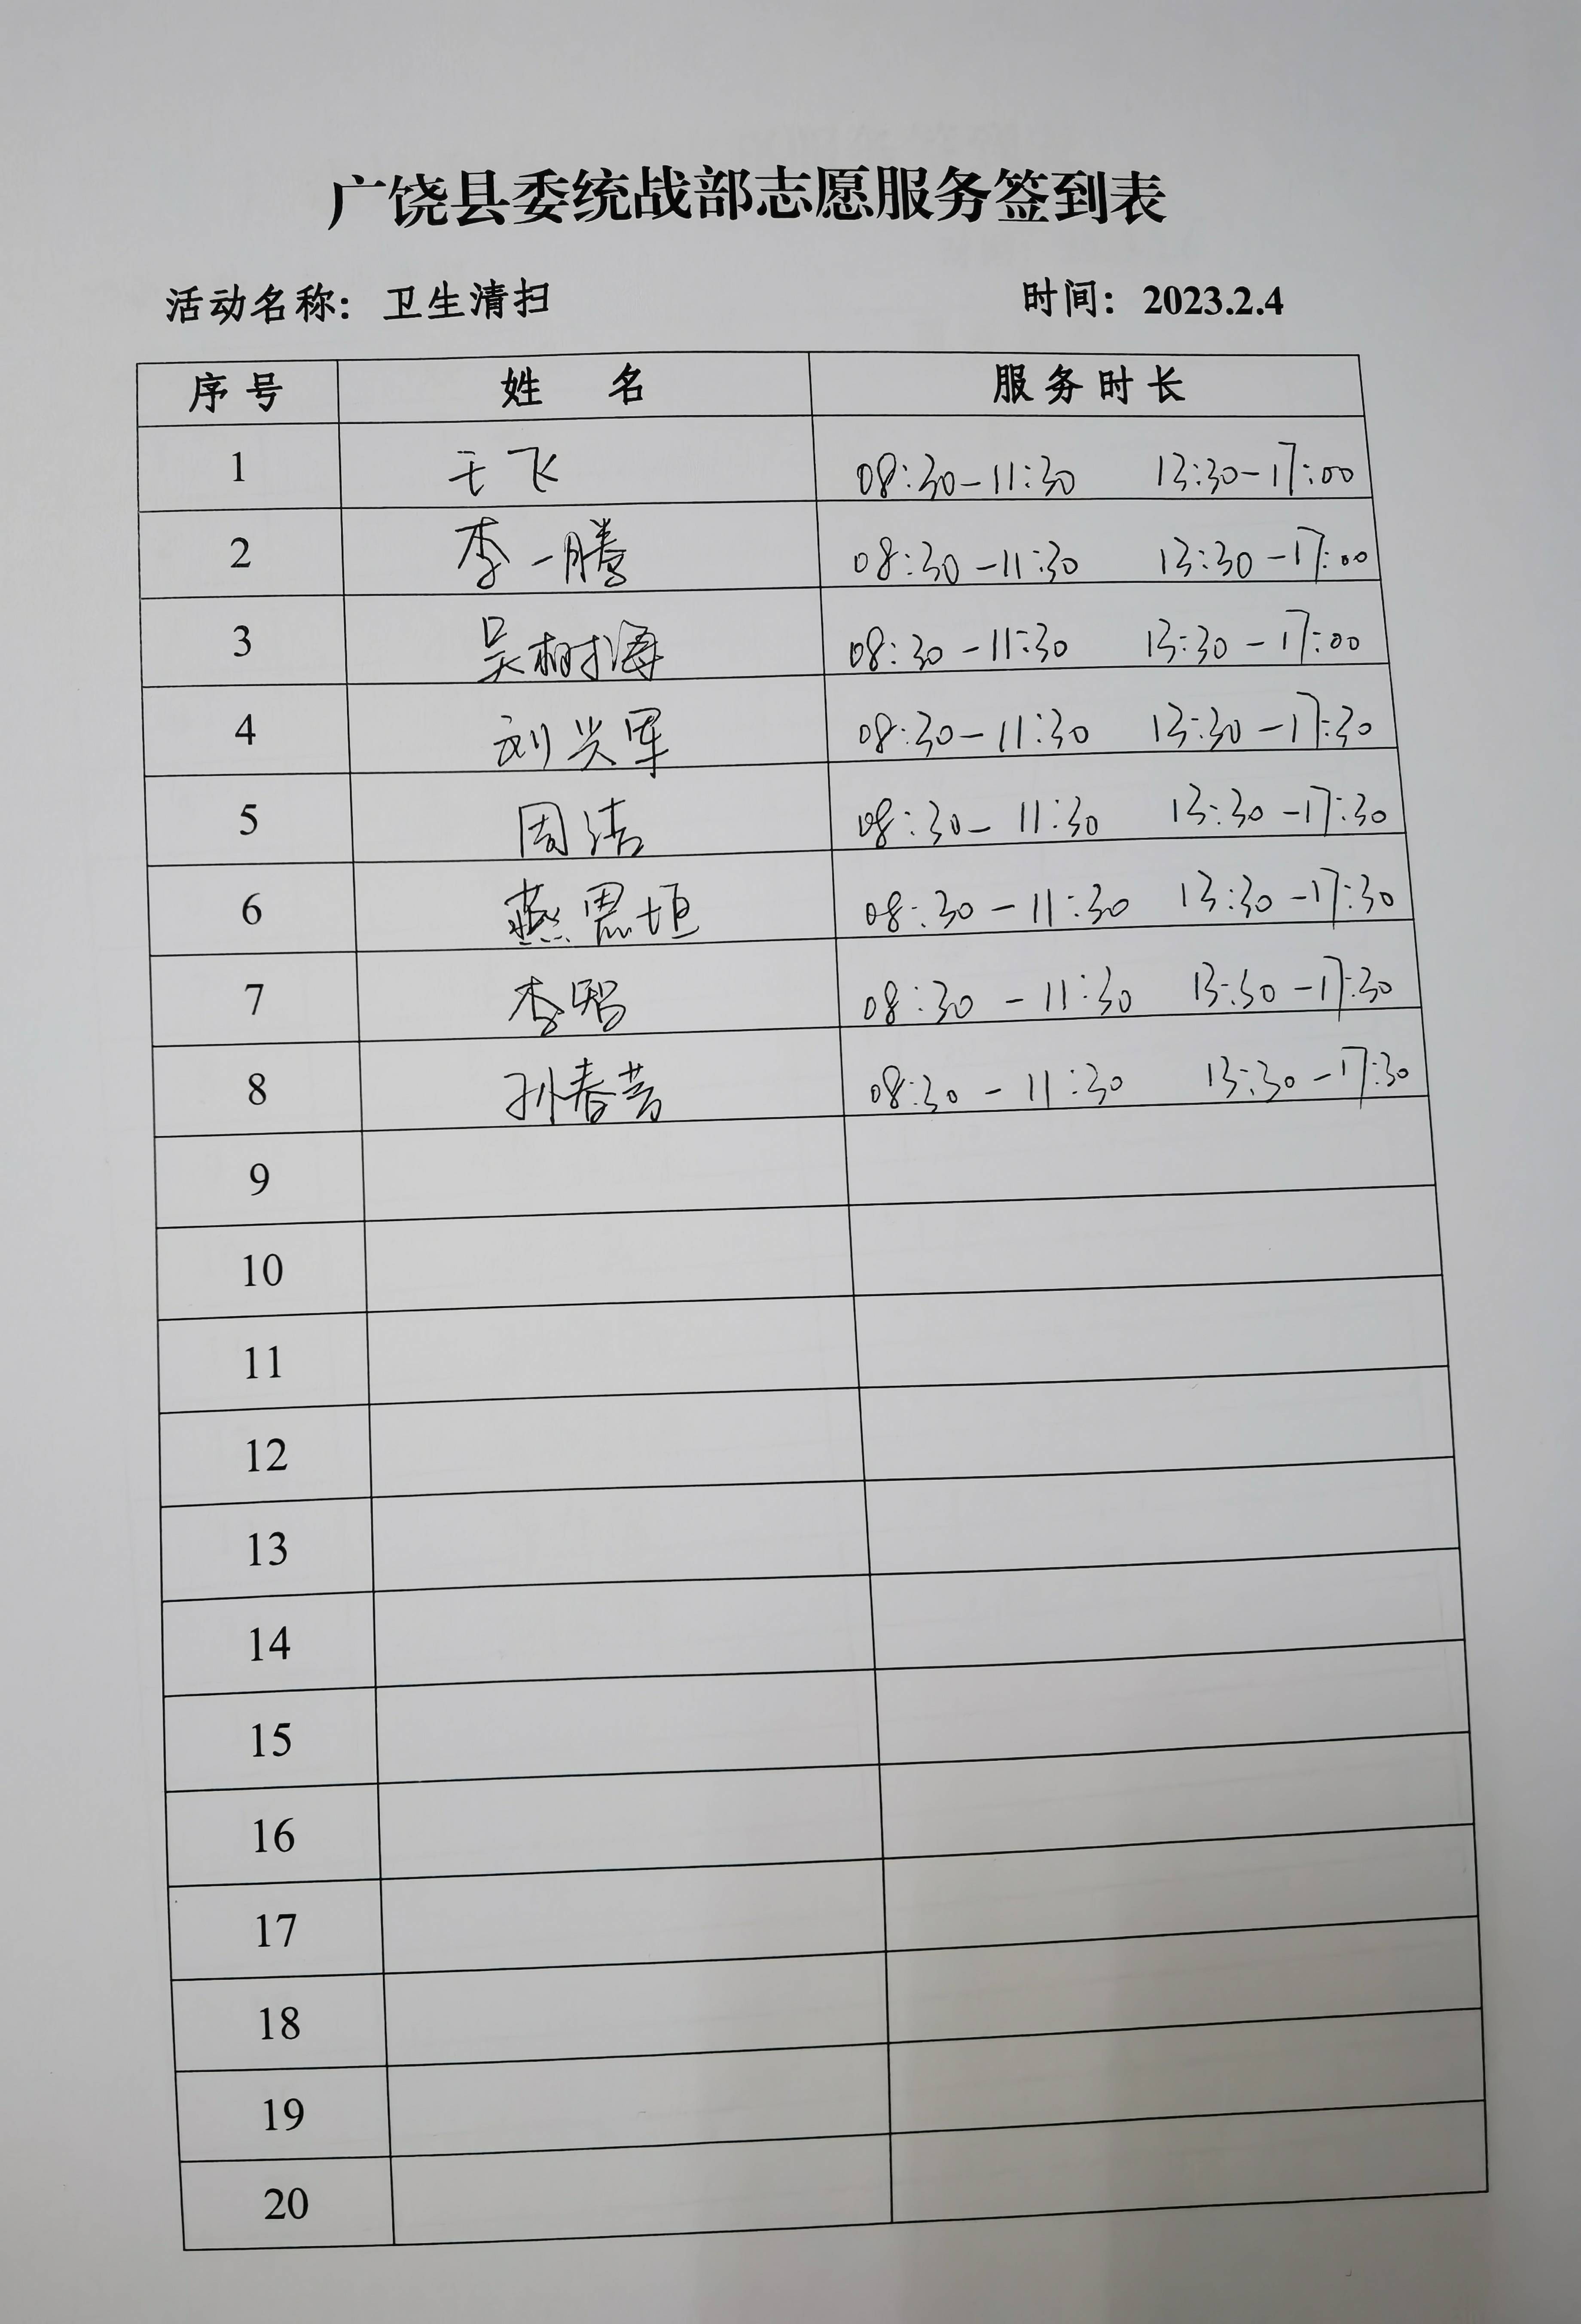 广饶县委统战部志愿服务签到表
活动名称：卫生清扫 时间：2023.2.4
序号 姓名 服务时长
1 王飞 08:30-11:30 13:30-17:00
2 李一腾 08:30-11:30 13:30-17:00
3 吴树海 08:30-11:30 13:30-17:00
4 刘兴军 08:30-11:30 13:30-17:30
5 周洁 08:30-11:30 13:30-17:30
6 燕思垣 08:30-11:30 13:30-17:30
7 李智 08:30-11:30 13:30-17:30
8 孙春芳 08:30-11:30 13:30-17:30
9
10
11
12
13
14
15
16
17
18
19
20